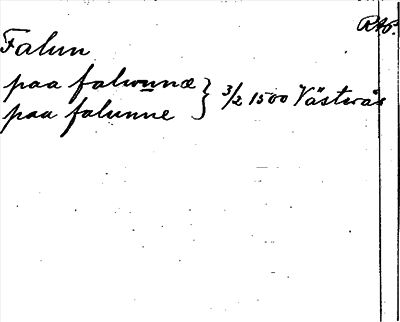 RAp.
Falun
paa falwunnæ } 3/2 1500 Västerås
paa falunne